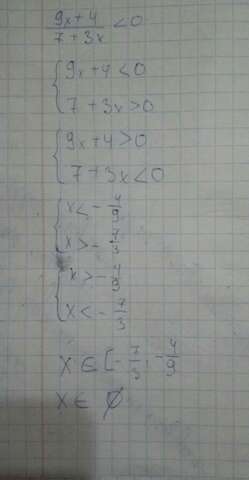 9x+4 / 7+3x < 0
{ 9x+4<0
7+3x>0
{ 9x+4>0
7+3x<0
{ x<-4/9
x>-7/3
{ x>-4/9
x<-7/3
x∈[-7/3;-4/9
x∈ ∅